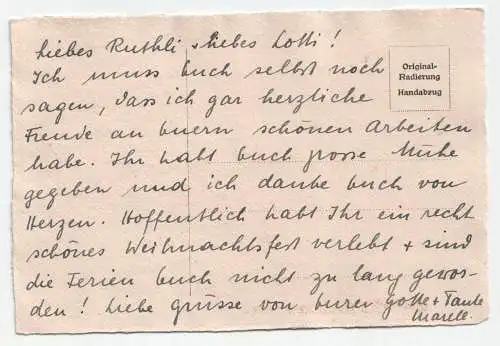 Liebes Ruthli + liebes Lotti!
Original-
Radierung
Handabzug
Ich muss Euch selbst noch
sagen, dass ich gar herzliche
Freude an Euern schönen Arbeiten
habe. Ihr habt Euch grosse Mühe
gegeben und ich danke Euch von
Herzen. Hoffentlich habt Ihr ein recht
schönes Weihnachtsfest verlebt + sind
die Ferien Euch nicht zu lang gewor-
den! Liebe Grüsse von Eurer Gotte + Tante